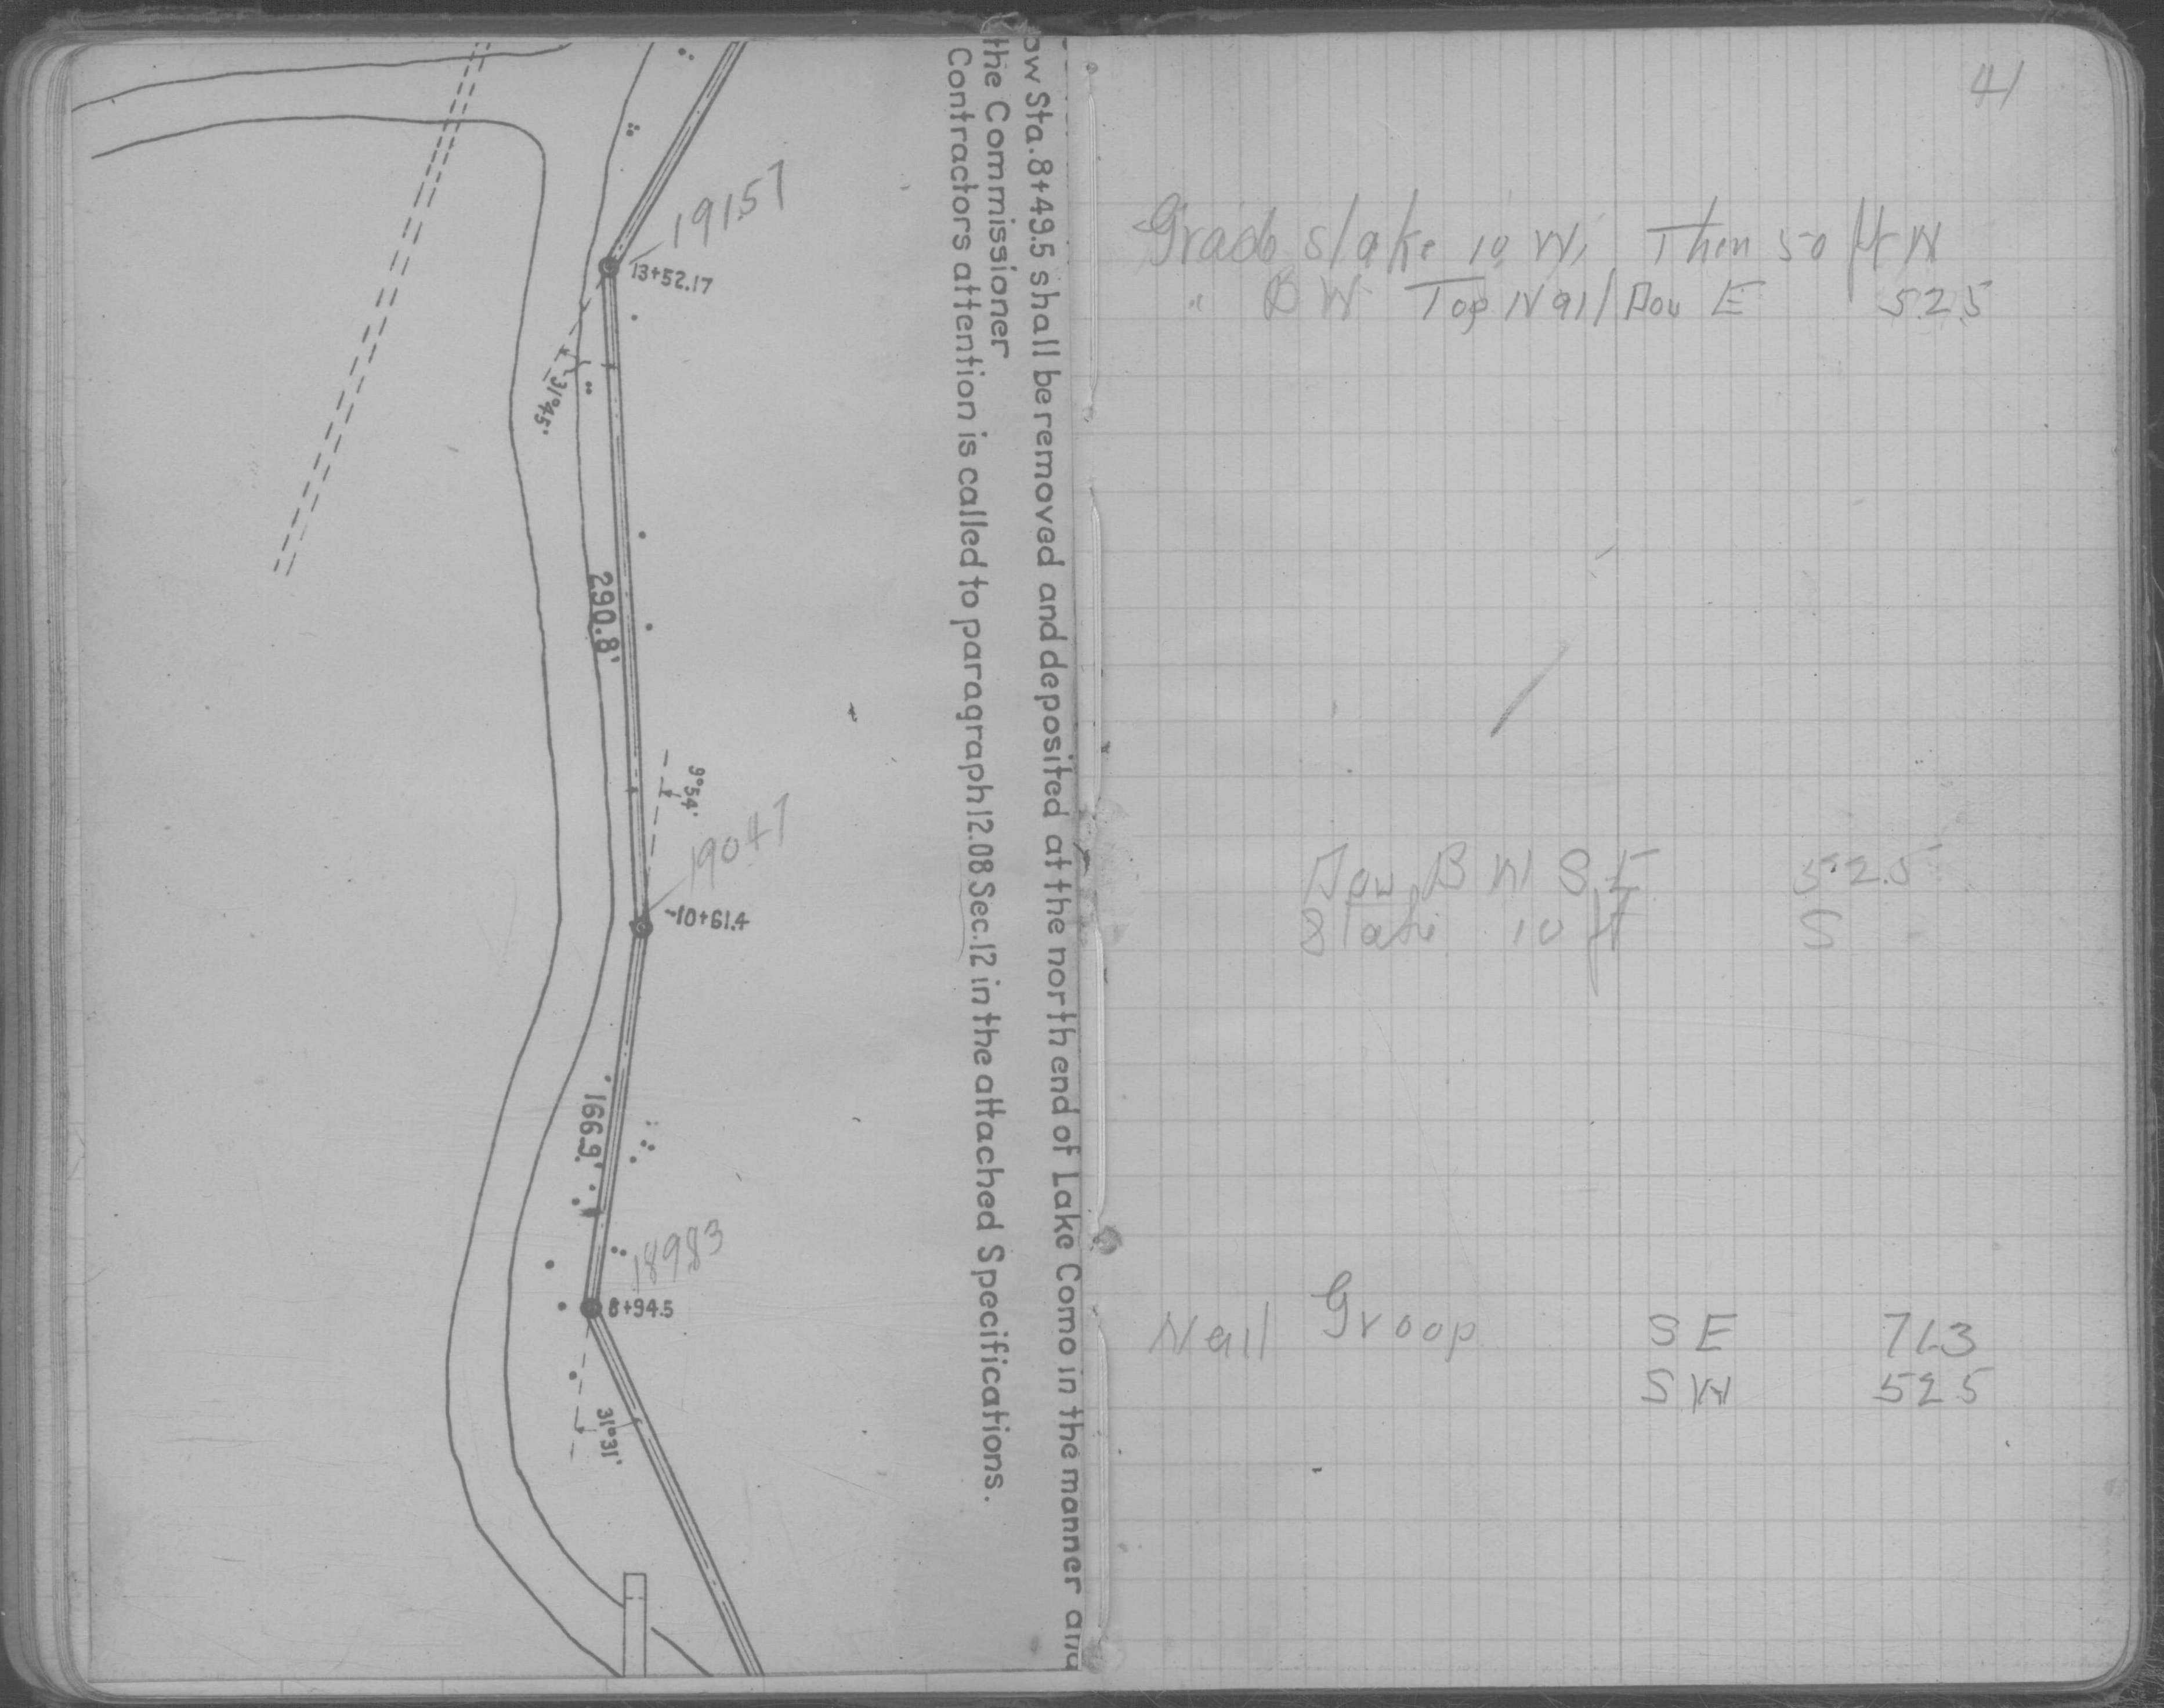 ow Sta. 8+49.5 shall be removed and deposited at the north end of Lake Como in the manner and
the Commissioner
Contractors attention is called to paragraph 12.08 Sec. 12 in the attached Specifications.
19157
13+52.17
31°45'
290.8'
9°54'
19047
10+61.4
166.9'
18983
8+94.5
31°31'
41
Grade stake 10 W, Then 50 ft W
" B W Top Nail E 525
B W S E 5.2.5
Stake 10 ft S
Nail Groop S E 713
S W 525